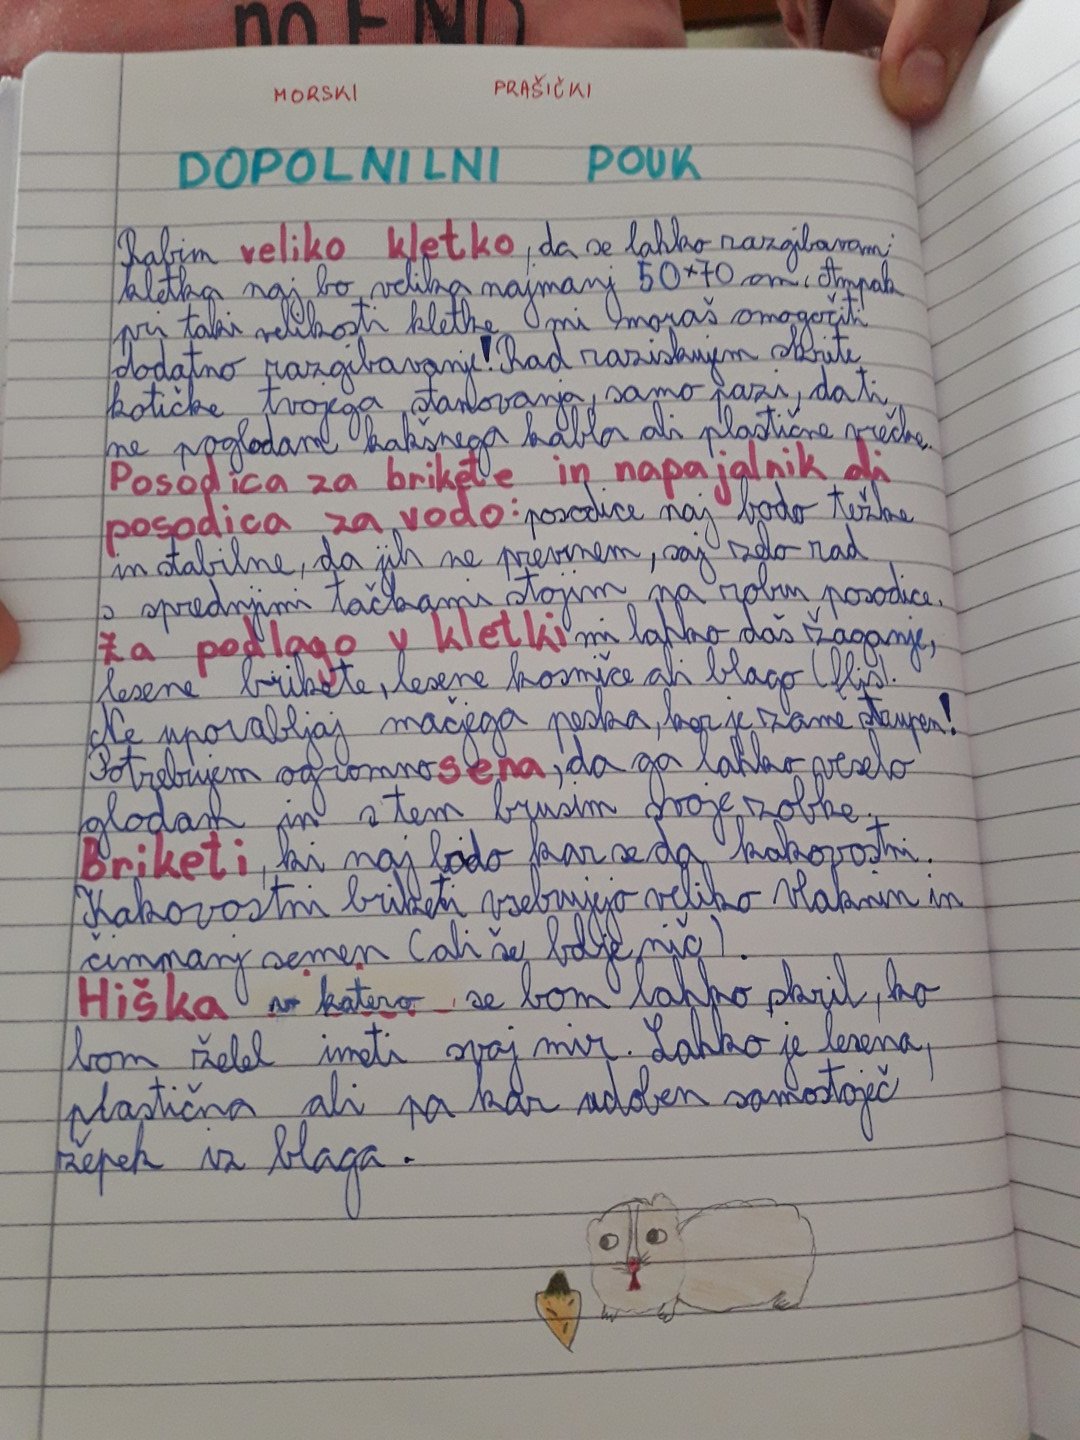 no END
MORSKI PRAŠIČKI
DOPOLNILNI POUK
Rabim veliko kletko, da se lahko razgibavam;
kletka naj bo velika najmanj 50*70 cm. Ampak
pri taki velikosti kletke mi moraš omogočiti
dodatno razgibavanje! Rad raziskujem skrite
kotičke tvojega stanovanja, samo pazi, da ti
ne poglodam kakšnega kabla ali plastične vrečke.
Posodica za brikete in napajalnik ali
posodica za vodo: posodice naj bodo težke
in stabilne, da jih ne prevrnem, saj zelo rad
s sprednjimi tačkami stojim na robu posodice.
Za podlago v kletki mi lahko daš žaganje,
lesene brikete, lesene kosmiče ali blago (flis).
Ne uporabljaj mačjega peska, ker je zame strupen!
Potrebujem ogromno sena, da ga lahko veselo
glodam in s tem brusim svoje zobke.
Briketi, ki naj bodo kar se da kakovostni.
Kakovostni briketi vsebujejo veliko vlaknin in
čimmanj semen (ali še bolje nič).
Hiška v katero se bom lahko skril, ko
bom želel imeti svoj mir. Lahko je lesena,
plastična ali pa kar udoben samostoječ
žepek iz blaga.